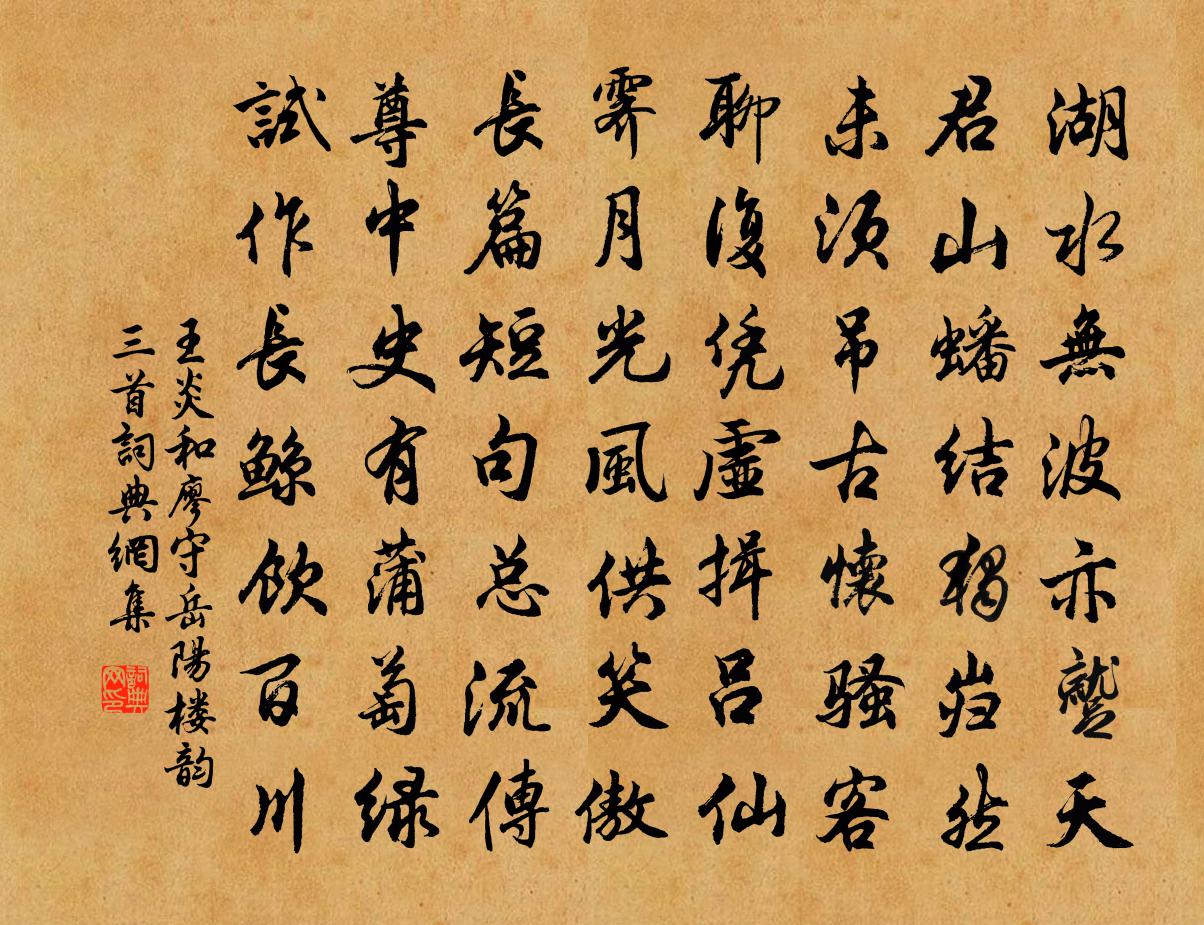 湖水無波亦蹵天
君山蟠結獨岿然
未須吊古懷騷客
聊復凭虛揖吕仙
霽月光風供笑傲
長篇短句总流傳
尊中更有蒲萄绿
試作長鲸飲百川
王炎和廖守岳陽楼韵
三首詞典網集
詞典
网印